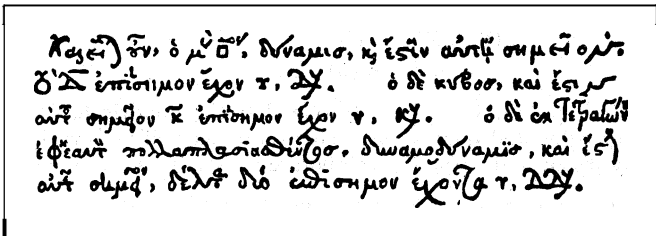 Καλεῖται οὖν, ὁ μὲν □ος, δύναμισ, κ ἔστιν αὐτῆ σημεῖον
τὸ Δ ἐπίσημον ἔχον υ, Δυ. ὁ δὲ κύβοσ, καὶ ἔστιν
αὐτοῦ σημεῖον κ ἐπίσημον ἔχον υ, κυ. ὁ δὲ ἐκ τετραγώνου
ἐφ' ἑαυτ πολλαπλασιασθέντοσ, δυναμοδύναμϊσ, καὶ ἔστιν
αὐτοῦ σημεῖον, δέλτα δύο ἐπίσημον ἔχοντα υ, ΔΔυ.